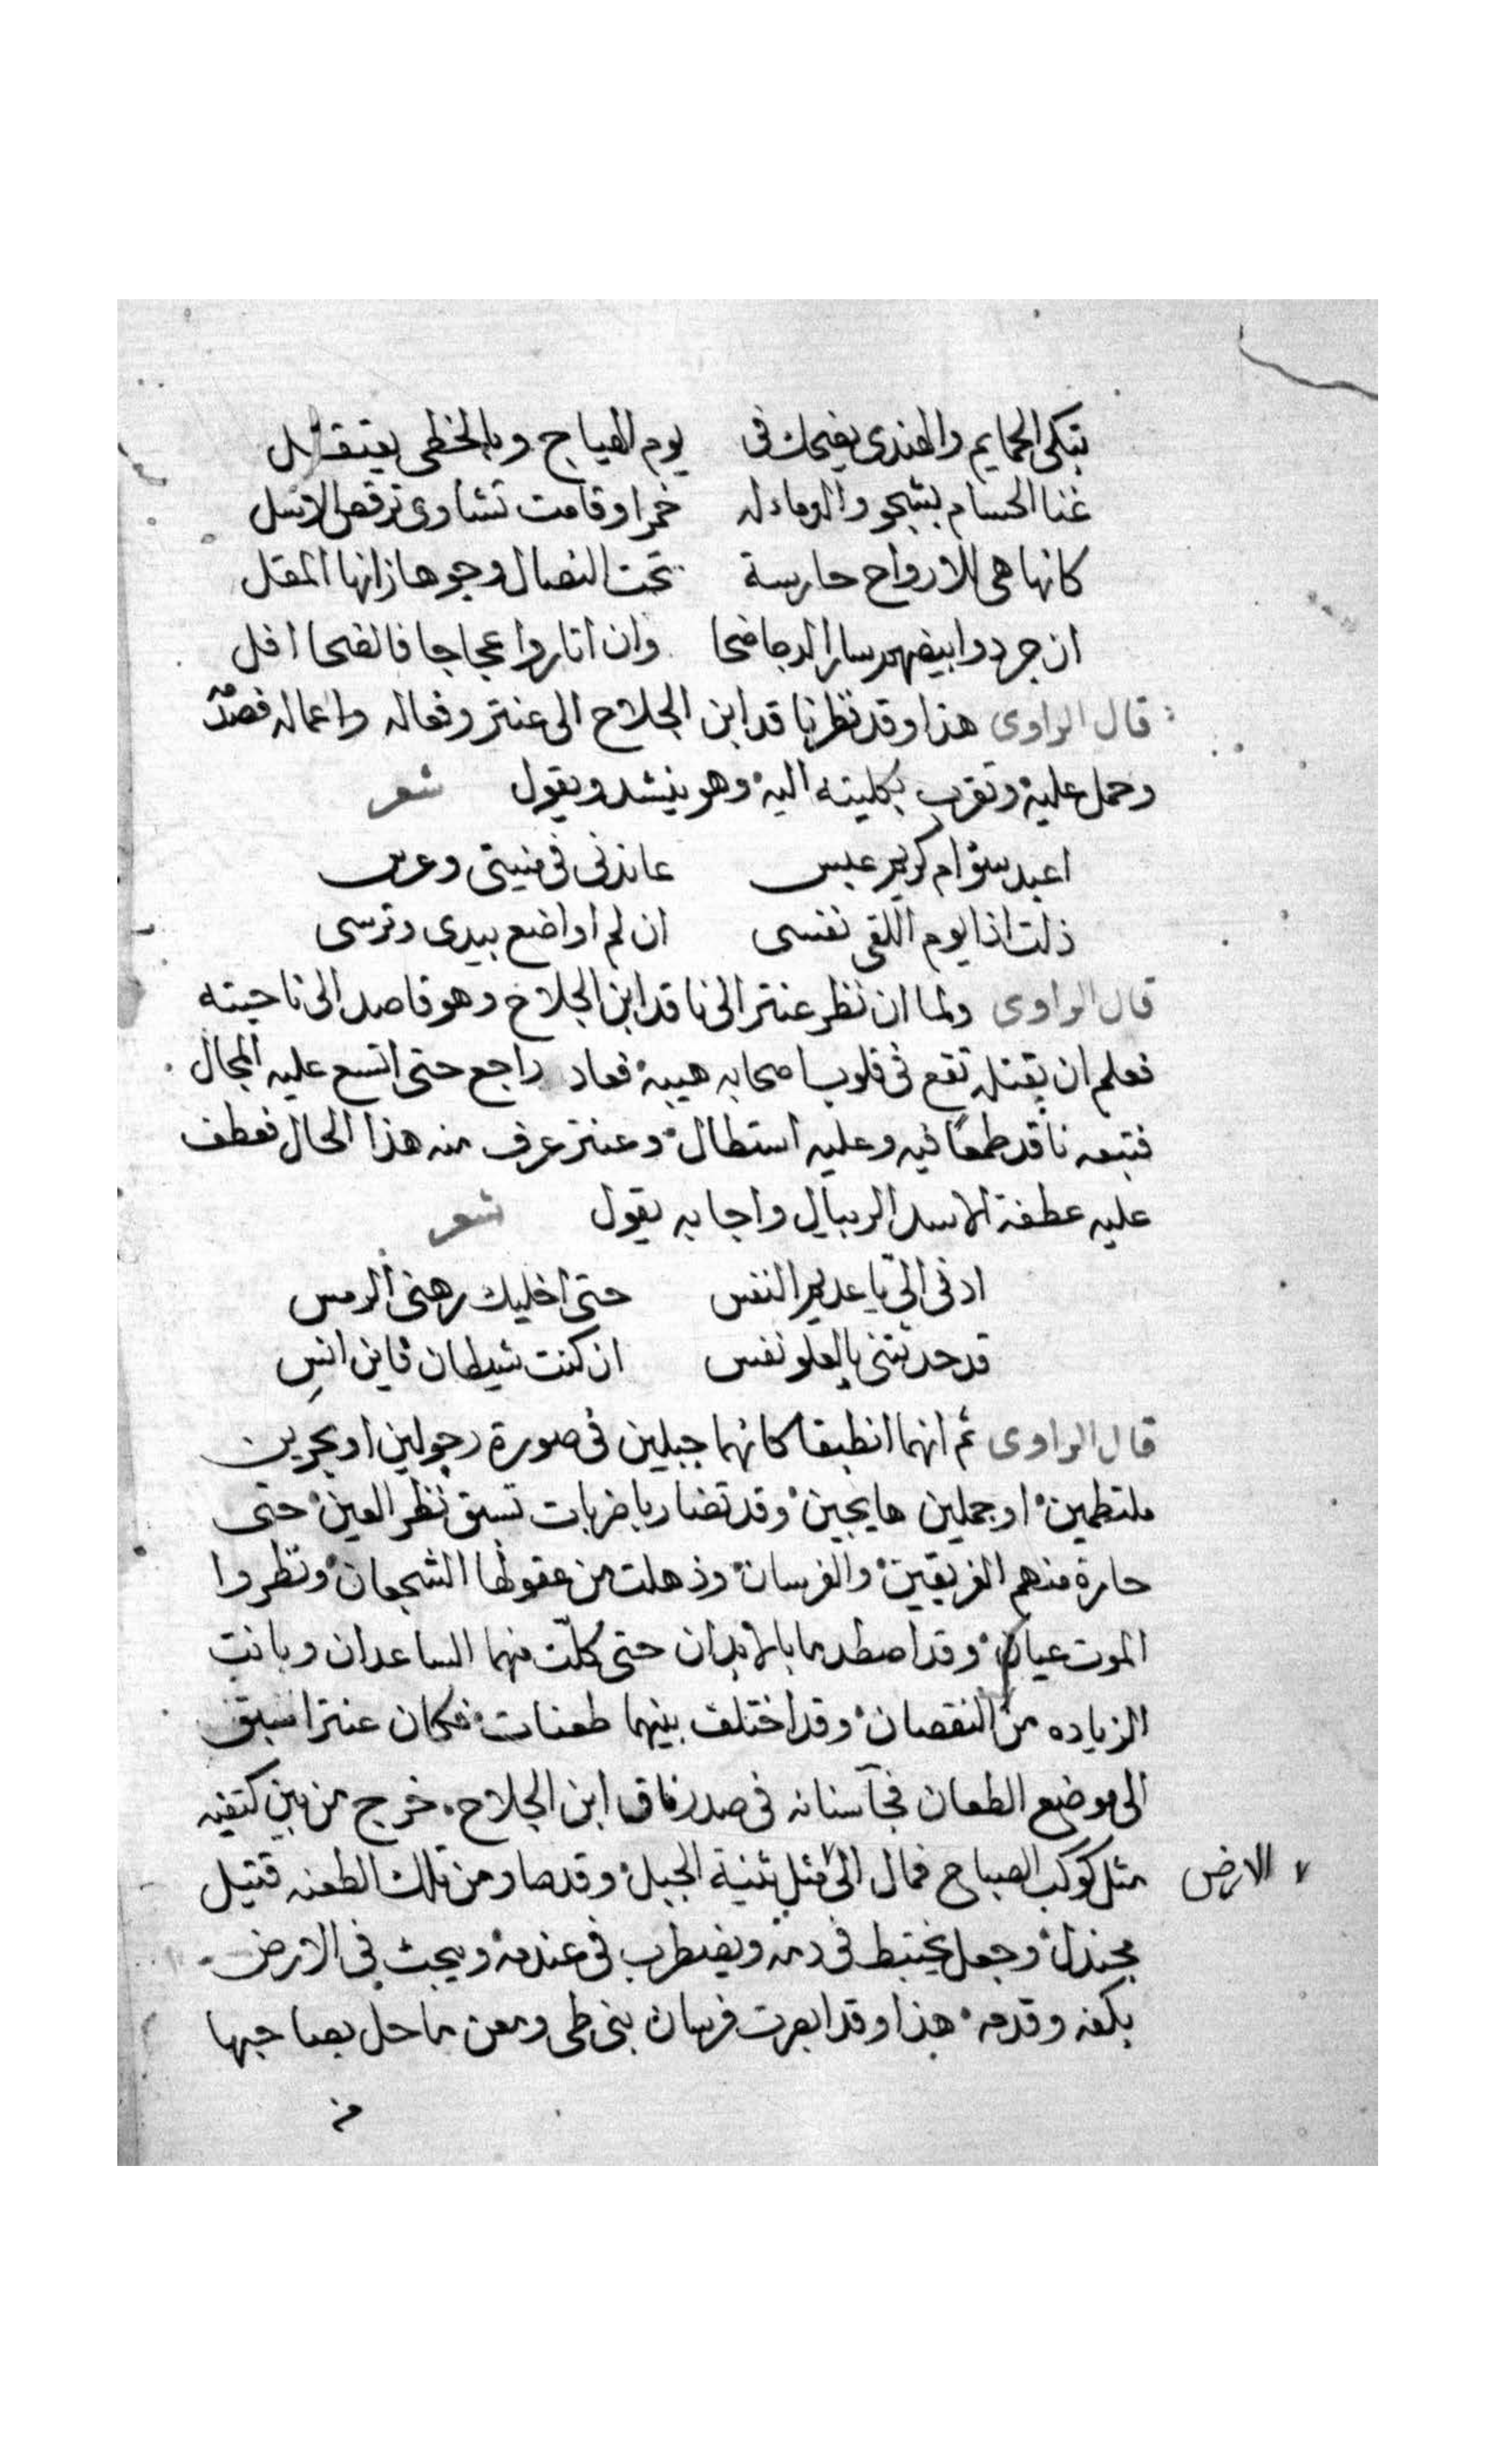 تبكى الجمايم والهندى يضحك فى يوم الهياج وبالخطى يعتقل
غنا الحسام بشجو والدماء له خمرا وقامت تشاوى ترقص الاسل
كانها هى للارواح حارسة تحت النصال وجوها زانها المقل
ان جردوا بيضهم سار الدجا ضحا وان اثاروا عجاجا فالضحا افل
قال الراوى هذا وقد نظر ناقد ابن الجلاح الى عنتر وفعاله واعماله فصدمه
وحمل عليه وتقرب بكليته اليه وهو ينشد ويقول شعر
اعبد سوّ ام كريم عبس عاندنى فى منيتى وعرس
ذلت اذا يوم اللقى نفسى ان لم اواضع بيدى وترسى
قال الراوى ولما ان نظر عنتر الى ناقد ابن الجلاح وهو قاصد الى ناحيته
فعلم ان يقتله تقع فى قلوب اصحابه هيبة فعاد راجع حتى اتسع عليه المجال
فتبعه ناقد طمعًا فيه وعليه استطال وعنتر عرف منه هذا الحال فعطف
عليه عطفة الاسد الريبال واجابه يقول شعر
ادنى الىّ يا عديم النفس حتى اخليك رهنى الرمس
قد حدثتنى بالعلو نفس ان كنت شيطان فاين انسِ
قال الراوى ثم انهما انطبقا كانهما جبلين فى صورة رجولين او بحرين
ملتطمين او جملين هايجين وقد تضاربا ضربات تسبق نظر العين حتى
حارة منهم الفريقين والفرسان وذهلت من عقولها الشجعان ونظروا
الموت عيان وقد اصطدما بالابدان حتى كلّت منهما الساعدان وبانت
الزياده من النقصان وقد اختلف بينهما طعنات فكان عنتر اسبق
الى موضع الطعان فجآ سنانه فى صدر ناقد ابن الجلاح خرج من بين كتفيه
مثل كوكب الصباح فمال الى الارض مثل ثنية الجبل وقد صار من تلك الطعنه قتيل
مجندل وجعل يختبط فى دمه ويضطرب فى عندمه ويبحث فى الارض
بكفه وقدمه هذا وقد ابصرت فرسان بنى طى ومعن ما حل بصاحبها